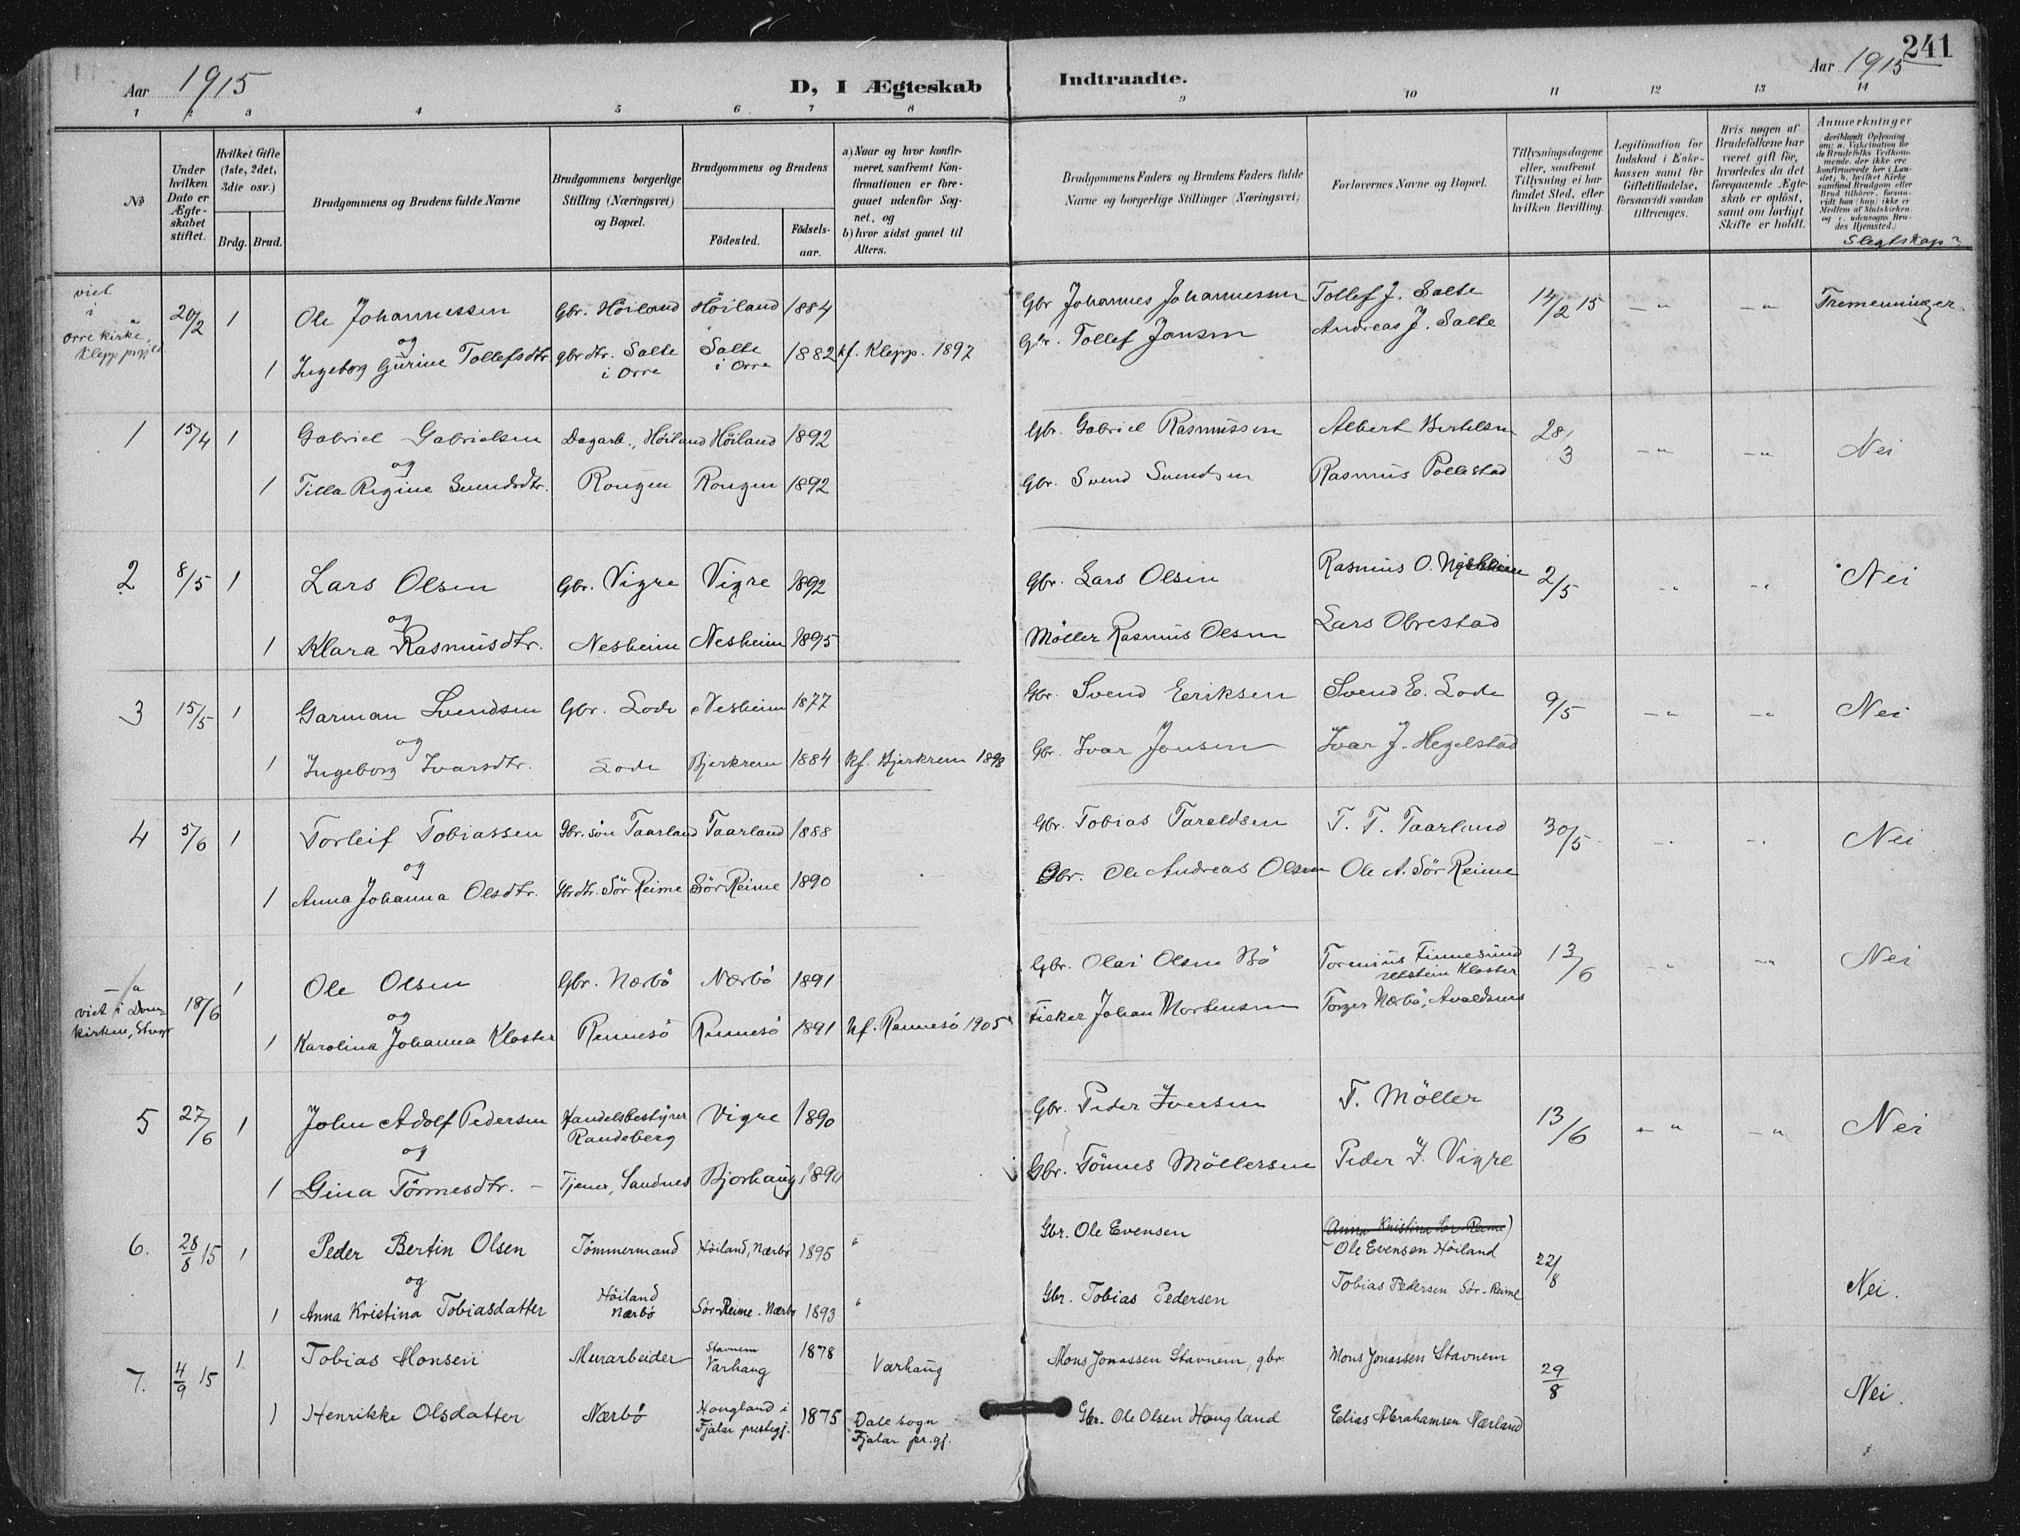 241
Aar 1915
D, I Ægteskab Indtraadte.
Aar 1915
1 2 3 4 5 6 7 8 9 10 11 12 13 14
No
Under hvilken Dato er Ægteskabet stiftet.
Hvilket Gifte (1ste, 2det, 3die osv.)
Brdg. Brud.
Brudgommens og Brudens fulde Navne
Brudgommens borgerlige Stilling (Næringsvei) og Bopæl.
Brudgommens og Brudens
Födested.
Födselsaar.
a) Naar og hvor konfirmeret, saafremt Konfirmationen er foregaaet udenfor Sognet, og
b) hvor sidst gaaet til Alters.
Brudgommens Faders og Brudens Faders fulde Navne og borgerlige Stillinger (Næringsvei)
Forlovernes Navne og Bopæl.
Tillysningsdagene eller, saafremt Tillysning ei har fundet Sted, efter hvilken Bevilling.
Legitimation for Indskud i Enkekassen samt for Giftetilladelse, forsaavidt saadan tiltrænges.
Hvis nogen af Brudefolkene har været gift för, hvorledes da det foregaaende Ægteskab er oplöst, samt om lovligt Skifte er holdt.
Anmærkninger
Slegtskap?
viet i Orre kirke, Klepp prgjld 20/2 1 Ole Johannessen Gbr. Höiland Höiland 1884 Gbr Johannes Johannessen Tollef J. Salte 14/2 15 -"- -"- Tremenninger
og
1 Ingeborg Gurine Tollefsdtr. gbrdtr. Salte i Orre Salte i Orre 1882 kf. Klepp. 1897 Gbr. Tollef Jonsen Andreas J. Salte
1 15/4 1 Gabriel Gabrielsen Dagarb., Höiland Höiland 1892 Gbr. Gabriel Rasmussen Albert Bertelsen 28/3 -"- -"- Nei
og
1 Tilla Regine Svendsdtr. Rongen Rongen 1892 Gbr. Svend Svendsen Rasmus Pollestad
2 8/5 1 Lars Olsen Gbr. Vigre Vigre 1892 Gbr. Lars Olsen Rasmus O. 2/5 -"- -"- Nei
og
1 Klara Rasmusdtr. Nesheim Nesheim 1895 Möller Rasmus Olsen Lars Obrestad
3 15/5 1 Garman Svendsen Gbr. Lode Nesheim 1877 Gbr. Svend Eriksen Svend E. Lode 9/5 -"- -"- Nei
og
1 Ingeborg Ivarsdtr. Lode Bjerkrem 1884 kf. Bjerkrem Gbr. Ivar Jonsen Ivar J. Hegelstad
4 5/6 1 Torleif Tobiassen Gbr. sön Taarland Taarland 1888 Gbr. Tobias Taraldsen T. T. Taarland 30/5 -"- -"- Nei
og
1 Anna Johanna Olsdtr. Gbrdtr. Sör Reime Sör Reime 1890 Gbr. Ole Andreas Olsen Ole A. Sör Reime
viet i Domkirken, Stvgr 18/6 1 Ole Olsen Gbr. Nærbö Nærbö 1891 Gbr. Olai Olsen Bö Finnesund Utstein Kloster 13/6 -"- -"- Nei
og
1 Karolina Johanna Kloster Rennesö Rennesö 1891 kf. Rennesö 1905 Fisker Johan Mortensen Torger Nærbö, Avaldsnes
5 27/6 1 John Adolf Pedersen Handelsbestyrer Randeberg Vigre 1890 Gbr. Peder Iversen T. Möller 13/6 -"- -"- Nei
og
1 Gina Tönnesdtr. Tjener, Sandnes Bjorhaug 1890 Gbr. Tönnes Möllersen Peder I. Vigre
6. 28/8 15 1 Peder Bertin Olsen Tömmermand Höiland, Nærbö 1895 " Gbr. Ole Evensen (Anna Kristina Sör-Reime) Ole Evensen Höiland 22/8
og
1 Anna Kristina Tobiasdatter Höiland Nærbö Sör-Reime. Nærbö 1893 " Gbr. Tobias Pedersen Tobias Pedersen Sör-Reime Nei.
7. 4/9 15 1 Tobias Monsen Murarbeider Stavnem Varhaug 1878 Varhaug Mons Jonassen Stavnem, gbr. Mons Jonassen Stavnem 29/8
1 Henrikke Olsdatter Nærbö Hougland i Fjalar prestegj. 1875 Dale sogn Fjalar pr.gj. Gbr. Ole Olsen Hougland Elias Abrahamsen Nærland Nei.